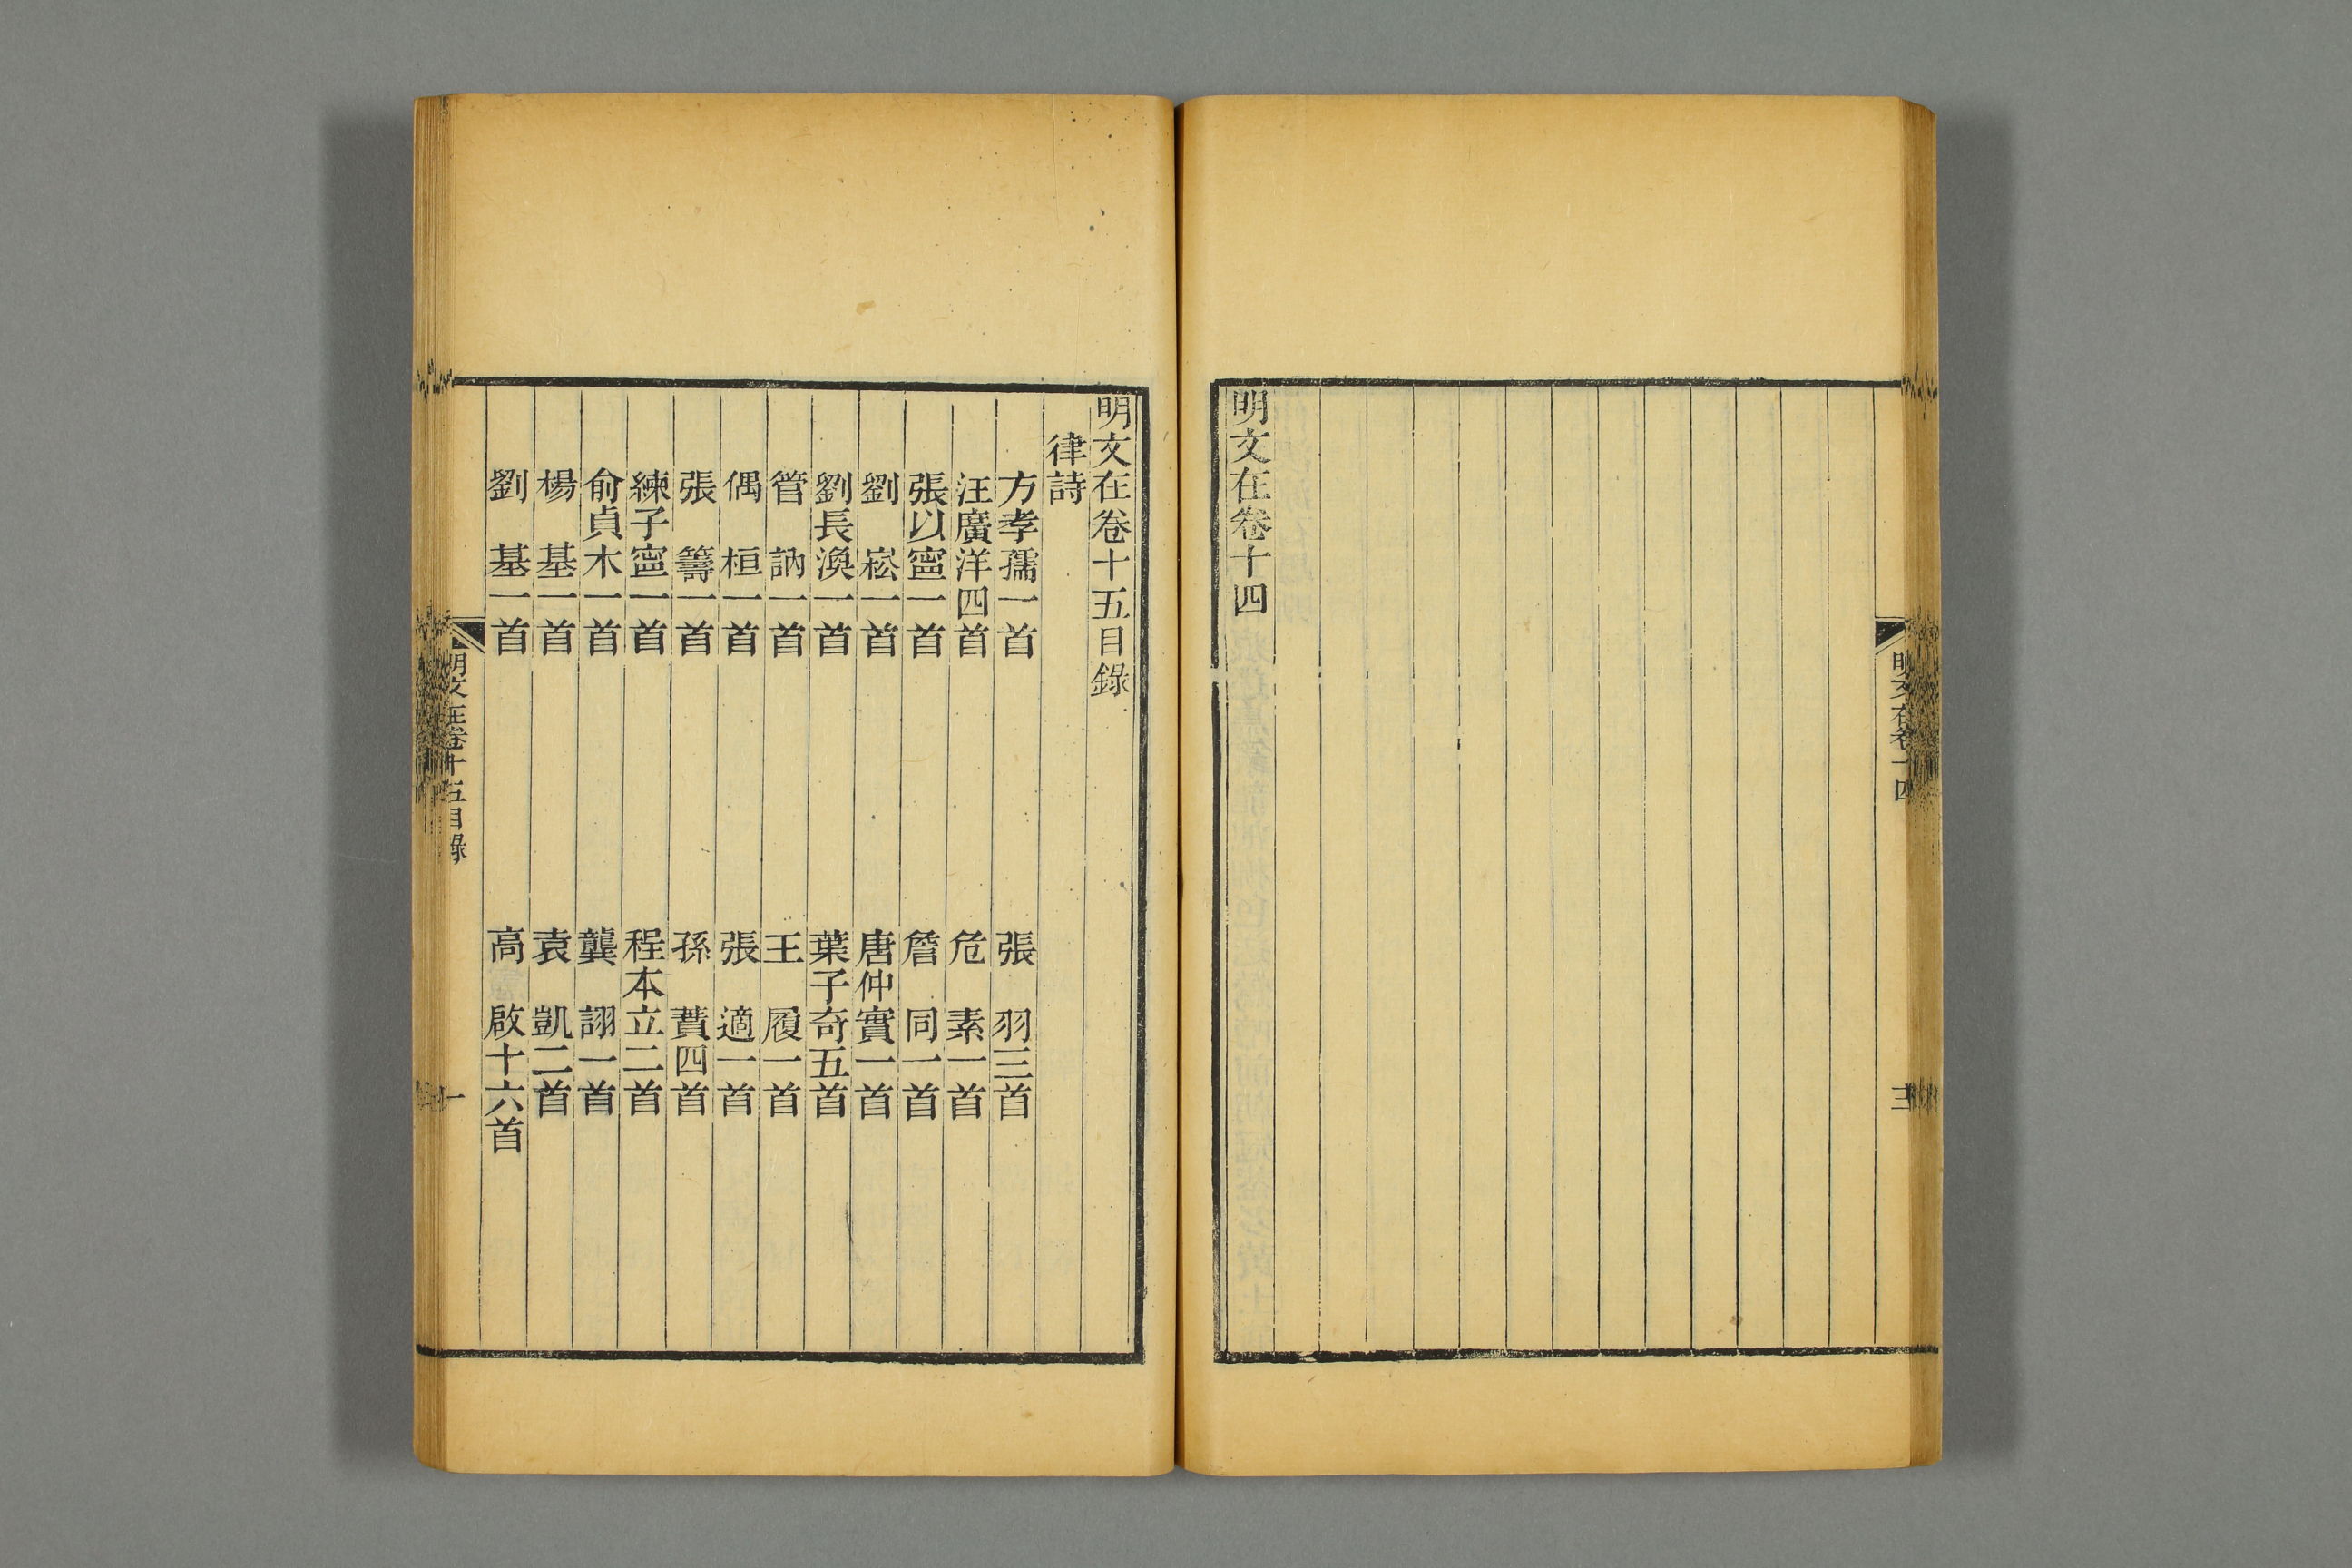 明文在卷十四
三
明文在卷十四
明文在卷十五目錄
律詩
方孝孺一首 張羽三首
汪廣洋四首 危素一首
張以寧一首 詹同一首
劉崧一首 唐仲實一首
劉長渙一首 葉子奇五首
管訥一首 王履一首
偶桓一首 張適一首
張籌一首 孫蕡四首
練子寧一首 程本立二首
俞貞木一首 龔詡一首
楊基一首 袁凱二首
劉基一首 高啟十六首
明文在卷十五目錄
一